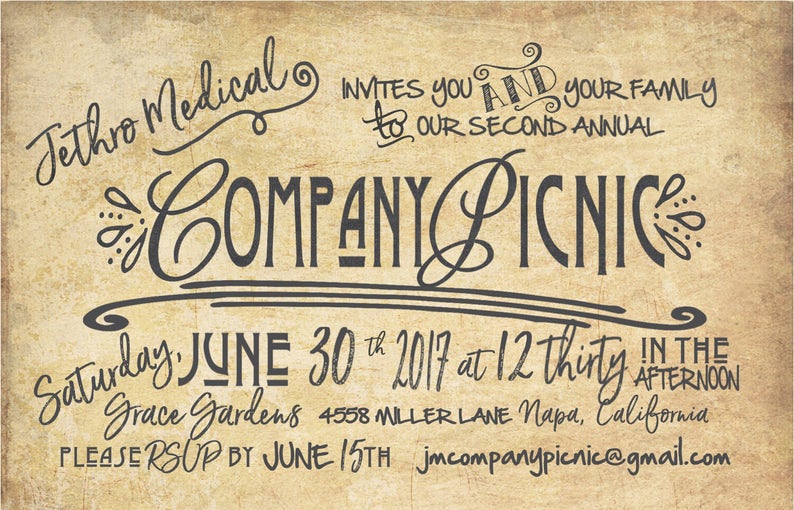 Jethro Medical
INVITES YOU AND YOUR FAMILY
to OUR SECOND ANNUAL
COMPANY PICNIC
Saturday, JUNE 30th 2017 at 12 thirty IN THE AFTERNOON
Grace Gardens 4558 MILLER LANE Napa, California
PLEASE RSVP BY JUNE 15TH jmcompanypicnic@gmail.com